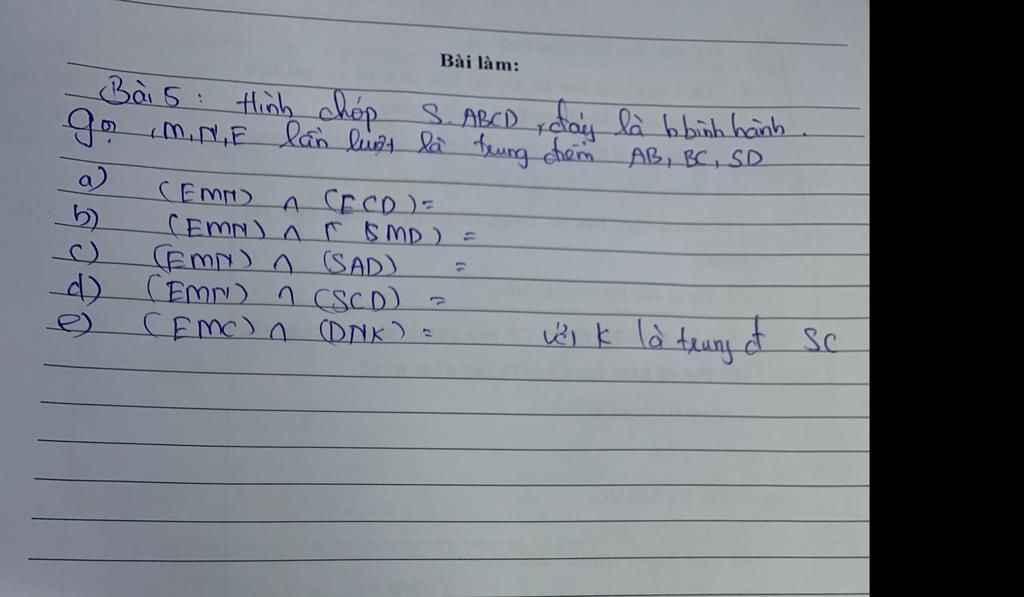 Bài làm:
Bài 5: Hình chóp S.ABCD, đáy là hbình hành.
gọi, M, N, E lần lượt là trung điểm AB, BC, SD
a) (EMN) ∩ (ECD) =
b) (EMN) ∩ (SMD) =
c) (EMN) ∩ (SAD) =
d) (EMN) ∩ (SCD) =
e) (EMC) ∩ (DNK) = với K là trung đ SC